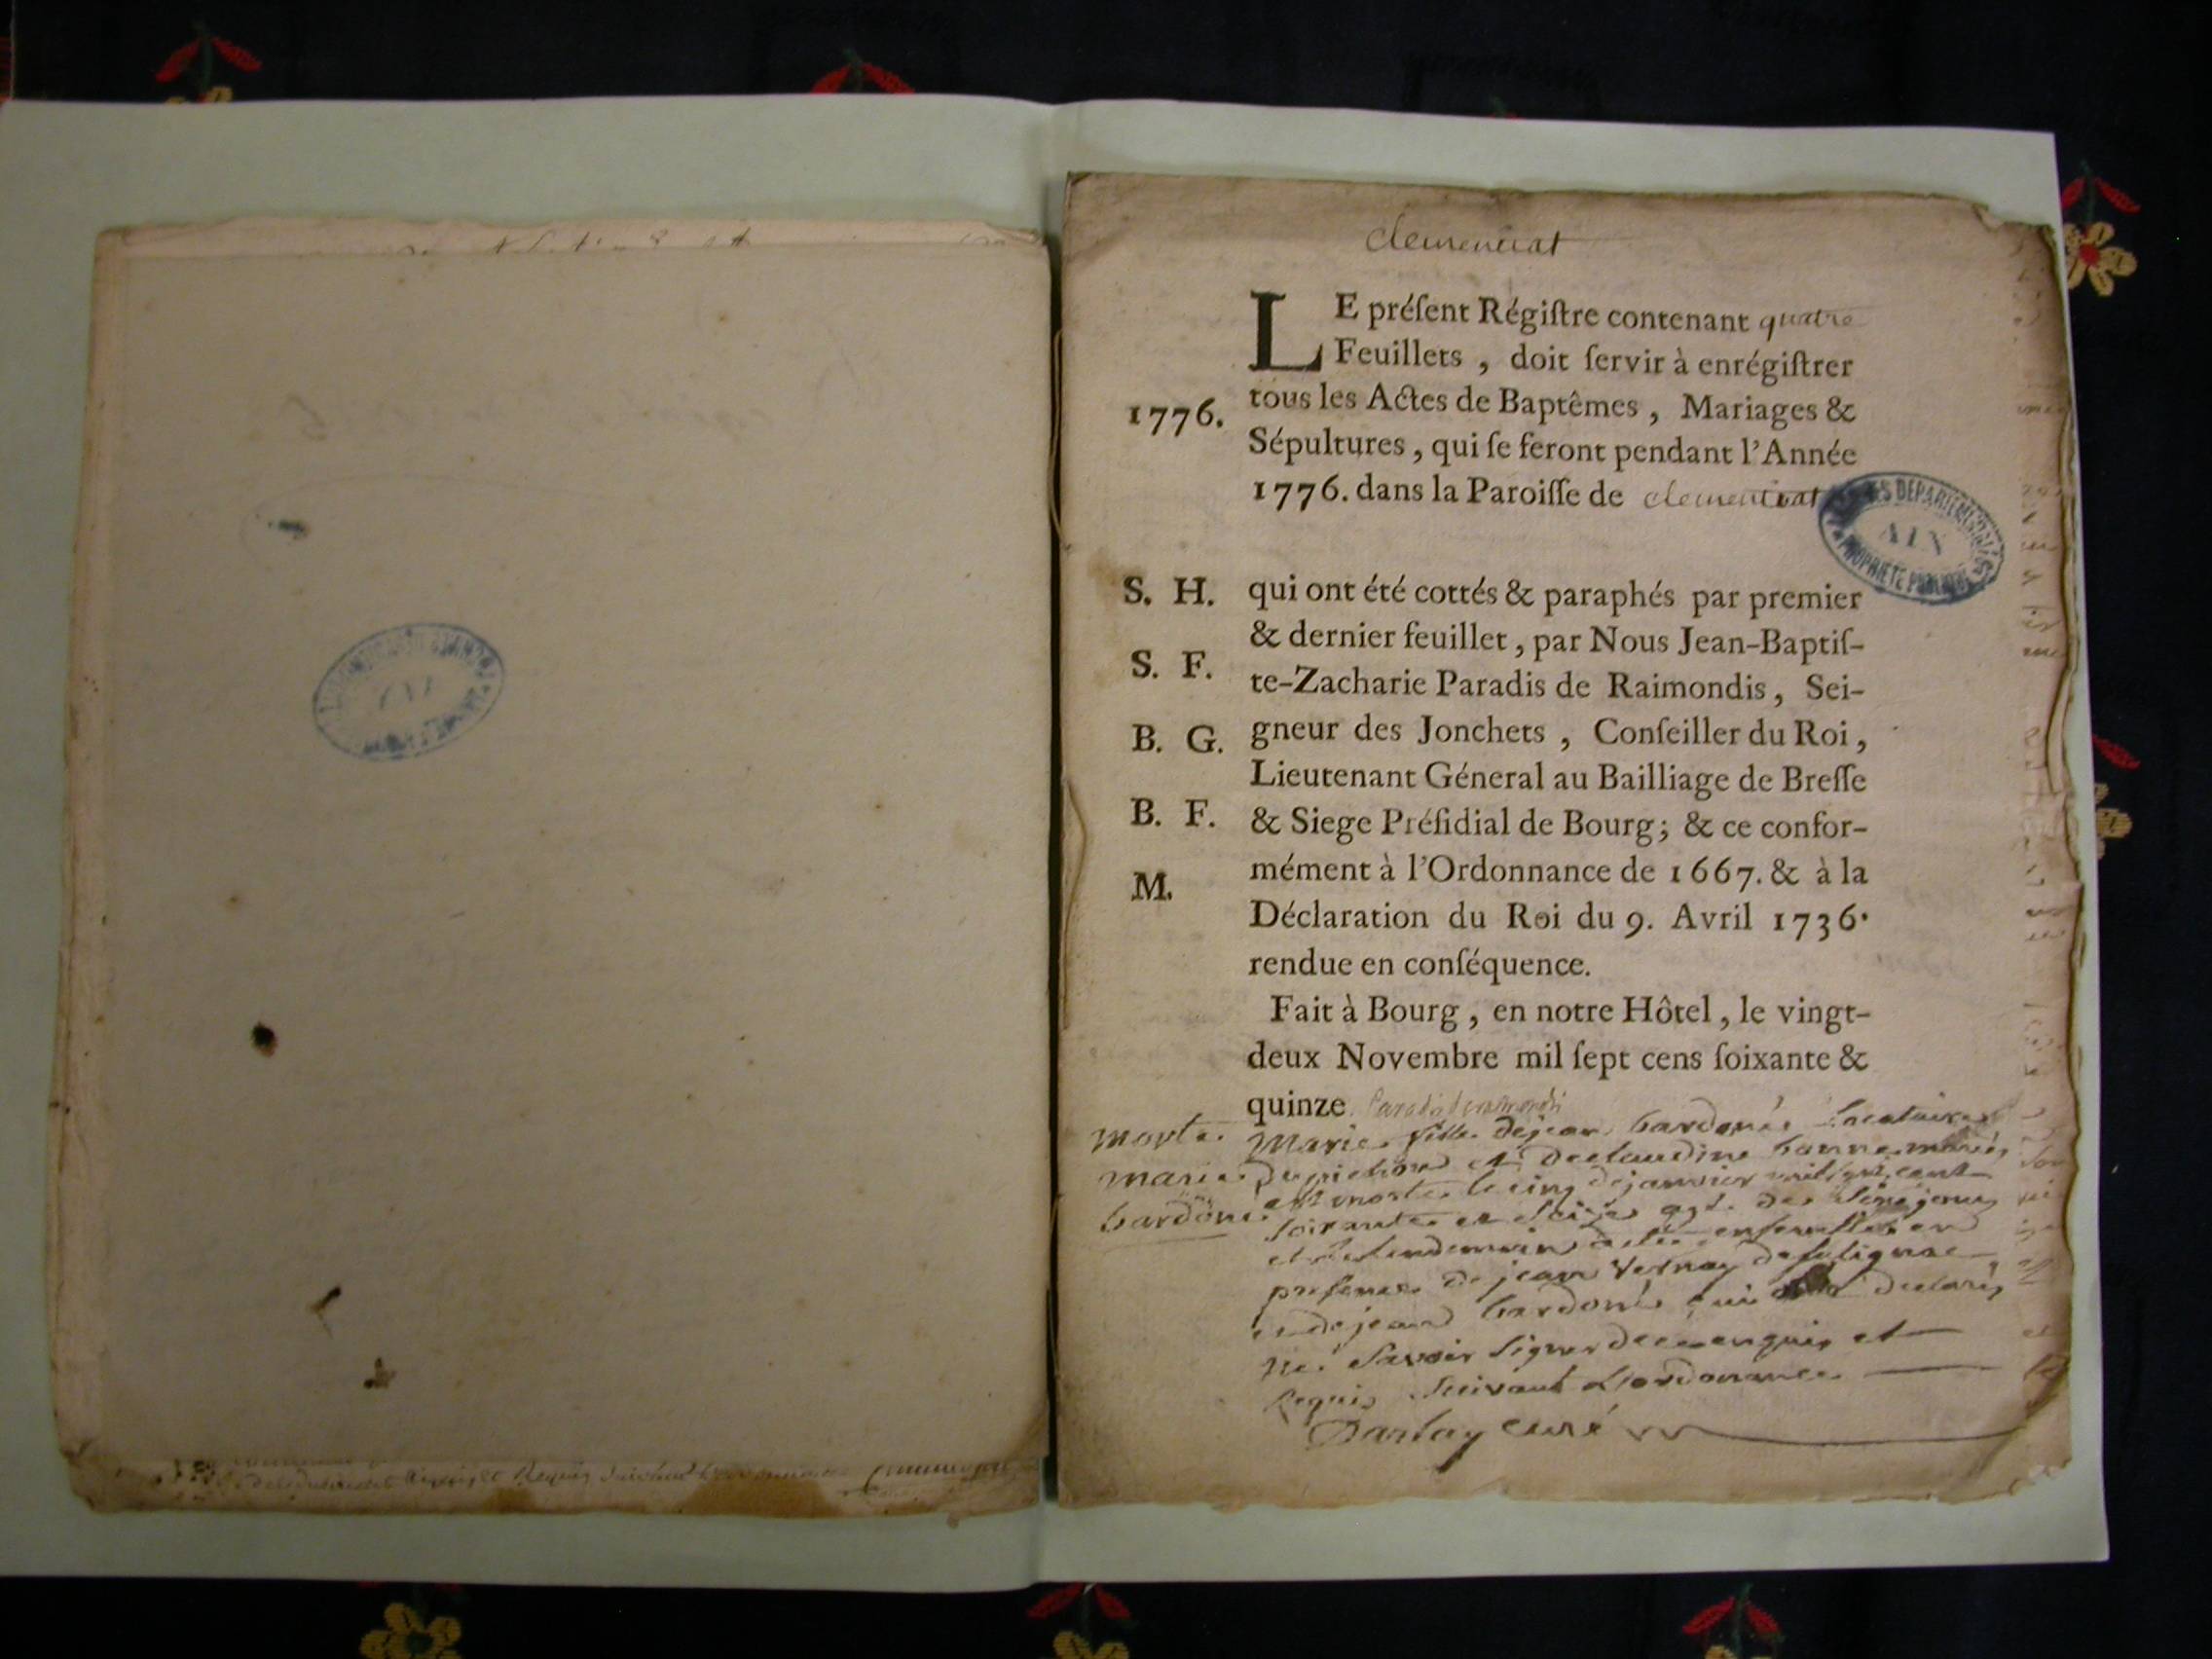 clemenciat
LE préſent Régiſtre contenant quatre
Feuillets , doit ſervir à enrégiſtrer
tous les Actes de Baptêmes , Mariages &
1776.
Sépultures , qui ſe feront pendant l'Année
1776. dans la Paroiſſe de clemenciat
ARCHIVES DEPARTEMENTALES
AIN
PROPRIETE PUBLIQUE
S. H.
qui ont été cottés & paraphés par premier
& dernier feuillet , par Nous Jean-Baptiſ-
S. F.
te-Zacharie Paradis de Raimondis , Sei-
B. G.
gneur des Jonchets , Conſeiller du Roi ,
Lieutenant Géneral au Bailliage de Breſſe
B. F.
& Siege Préſidial de Bourg ; & ce confor-
mément à l'Ordonnance de 1667. & à la
M.
Déclaration du Roi du 9. Avril 1736.
rendue en conſéquence.
Fait à Bourg , en notre Hôtel , le vingt-
deux Novembre mil ſept cens ſoixante &
quinze
morte
marie
bardoné
Marie fille dejean bardoné locataire
et declaudine bonne mariés
est morte le cinq dejanvier mil sept cent
soixante et seize
et le lendemain a été ensevelie en
presence de jean Vernay
et dejean bardoné qui declaré
ne savoir signer de ce enquis et
Requis suivant L'ordonnance
Dartay curé